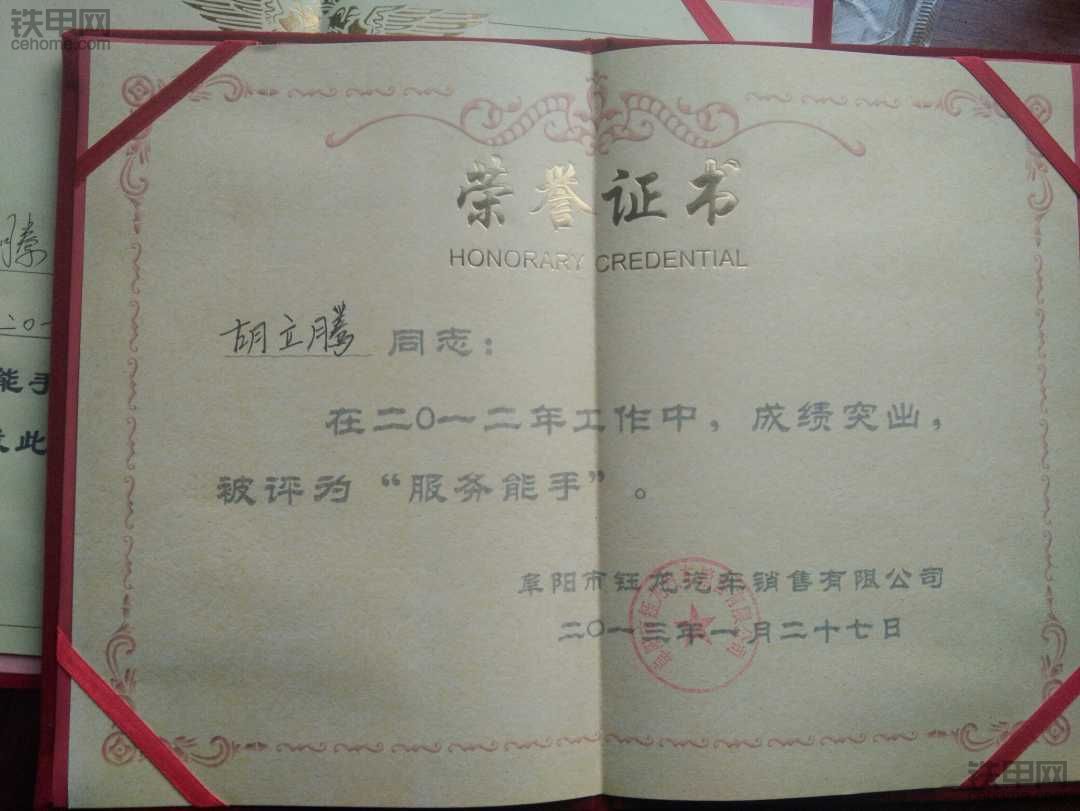 铁甲网
cehome.com
荣誉证书
HONORARY CREDENTIAL
胡立腾 同志：
在二〇一二年工作中，成绩突出，
被评为“服务能手”。
阜阳市钰龙汽车销售有限公司
二〇一三年一月二十七日
腾
二〇一
能手
此
铁甲网